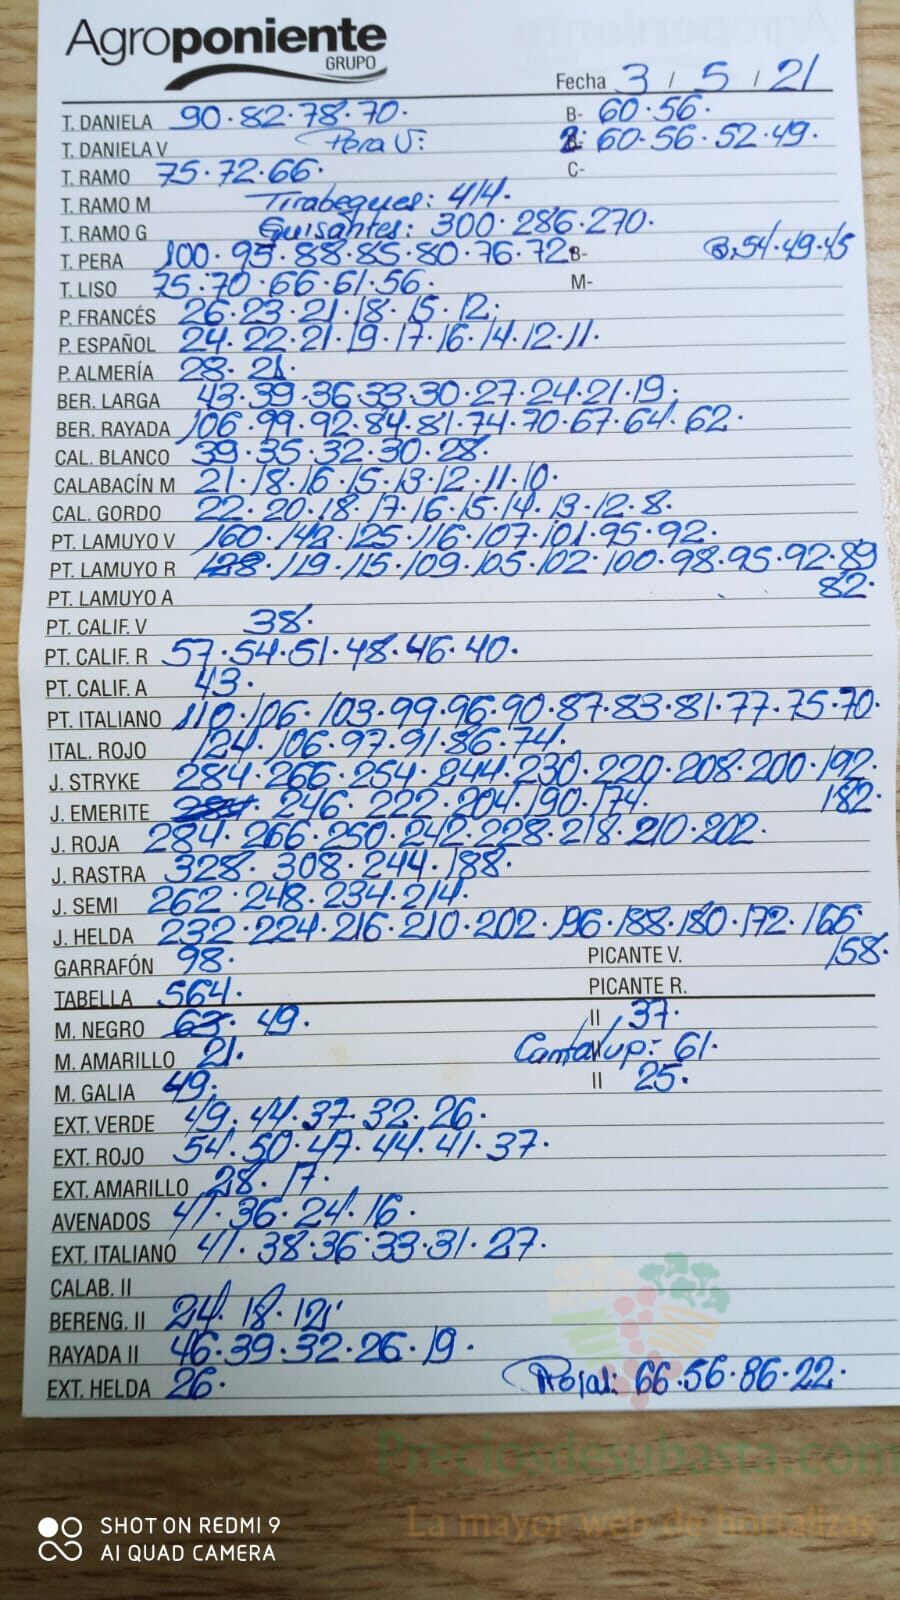 Agroponiente
GRUPO
Fecha 3 / 5 / 21
T. DANIELA 90·82·78·70· B- 60·56·
T. DANIELA V Pera V: 2: 60·56·52·49·
T. RAMO 75·72·66· C-
T. RAMO M Tirabeques: 414·
T. RAMO G Guisantes: 300·286·270·
T. PERA 100·95·88·85·80·76·72· B- B.54·49·45
T. LISO 75·70·66·61·56· M-
P. FRANCÉS 26·23·21·18·15·12·
P. ESPAÑOL 24·22·21·19·17·16·14·12·11·
P. ALMERÍA 28·21·
BER. LARGA 43·39·36·33·30·27·24·21·19·
BER. RAYADA 106·99·92·84·81·74·70·67·64·62·
CAL. BLANCO 39·35·32·30·28·
CALABACÍN M 21·18·16·15·13·12·11·10·
CAL. GORDO 22·20·18·17·16·15·14·13·12·8·
PT. LAMUYO V 160·142·125·116·107·101·95·92·
PT. LAMUYO R 128·119·115·109·105·102·100·98·95·92·89
PT. LAMUYO A 82·
PT. CALIF. V 38·
PT. CALIF. R 57·54·51·48·46·40·
PT. CALIF. A 43·
PT. ITALIANO 110·106·103·99·96·90·87·83·81·77·75·70·
ITAL. ROJO 124·106·97·91·86·74·
J. STRYKE 284·266·254·244·230·220·208·200·192·
J. EMERITE 246·222·204·190·174· 182·
J. ROJA 284·266·250·242·228·218·210·202·
J. RASTRA 328·308·244·188·
J. SEMI 262·248·234·214·
J. HELDA 232·224·216·210·202·196·188·180·172·166·
GARRAFÓN 98· PICANTE V. 158·
TABELLA 564· PICANTE R.
M. NEGRO 63· 49· II 37·
M. AMARILLO 21· Cantalup: 61·
M. GALIA 49· II 25·
EXT. VERDE 49·44·37·32·26·
EXT. ROJO 54·50·47·44·41·37·
EXT. AMARILLO 28·17·
AVENADOS 41·36·24·16·
EXT. ITALIANO 41·38·36·33·31·27·
CALAB. II
BERENG. II 24·18·12·
RAYADA II 46·39·32·26·19·
EXT. HELDA 26· 66·56·86·22·
Preciosdesubasta.com
La mayor web de hortalizas
SHOT ON REDMI 9
AI QUAD CAMERA